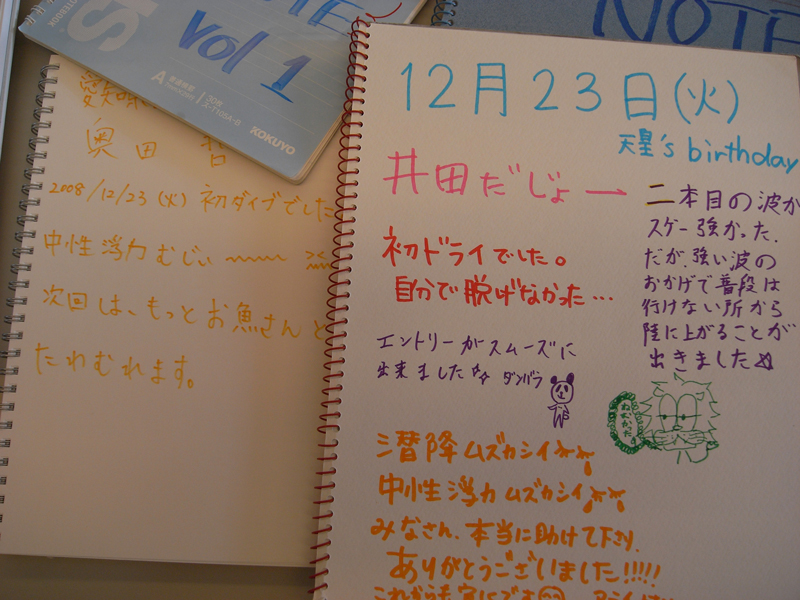 NOTE
vol 1
NOTEBOOK
A
KOKUYO
NOTE
奥田
2008/12/23 (火) 初ダイブでした
中性浮力むじぃ〜〜〜
次回は、もっとお魚さんと
たわむれます。
12月23日(火)
天星's birthday
井田だじょ→
初ドライでした。
自分で脱げなかった…
二本目の波が
スゲー強かった.
だが、強い波の
おかげで普段は
行けない所から
陸に上がることが
出きました
エントリーがスムーズに
出来ました☆ ダンバラ
潜降ムズカシイ
中性浮力ムズカシイ
みなさん、本当に助けて下さり、
ありがとうございました!!!!!